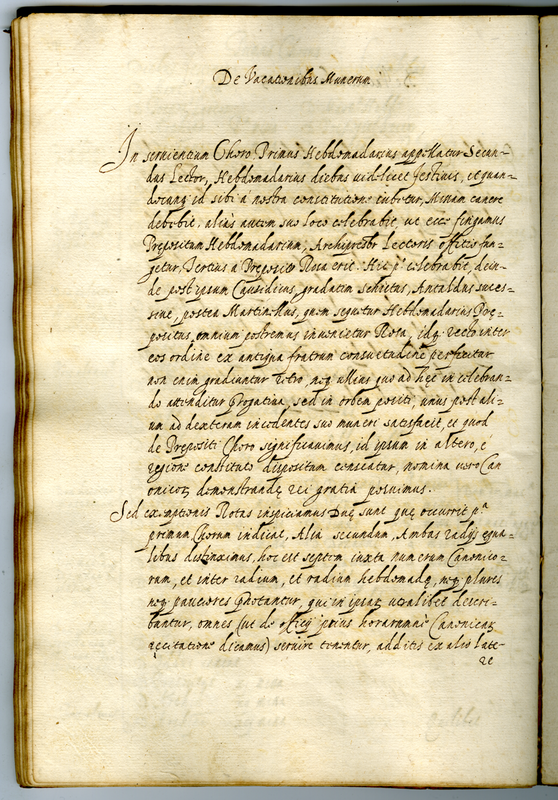 De Vacationibus Munerum
In seruientium Choro Primus Hebdomadarius appellatur Secun=
dus Lector, Hebdomadarius diebus uidelicet festiuis, et quan=
docunq id sibi a nostra constitutione iubetur, Missam canere
debebit, alias autem suo loco celebrabit ut ecce fingamus
Prepositum Hebdomadarium, Archipresbr Lectoris officio fun=
getur, Tertius a Preposito Rosa erit. Hic p° celebrabit, dein=
de post ipsum Causidicus, gradatim Schoitus, Antaldus succes=
siue, postea Martinellus, quem sequetur Hebdomadarius Pre=
positus, omnium postremus inuenietur Rosa, idq recto inter
eos ordine ex antiqua fratrum consuetudine perficitur
non enim gradiuntur retro, neq ullius quo ad hęc in celebran=
do attenditur prrogatiua, sed in orbem positi, unus post ali=
um ad dexteram incedentes suo muneri satisfacit, et quod
de Prepositi Choro significauimus, id ipsum in altero, é
regione constituto dispositum censeatur, nomina uero Can
onicor demonstrandę rei gratia posuimus.
Sed exemptionis Rotas inspiciamus Duę sunt quę occurrit pa
primum Chorum indicat, Alia secundum, Ambas radijs equa=
libus distinximus, hoc est septem iuxta numerum Canonico=
rum, et inter radium, et radium hebdomadę, neq plures
neq pauciores annotantur, qui in ipsar utralibet descri=
bantur, omnes (ut de officij prius horarumue Canonicar
recitatione dicamus) seruire tenentur, additis ex alio late=
re